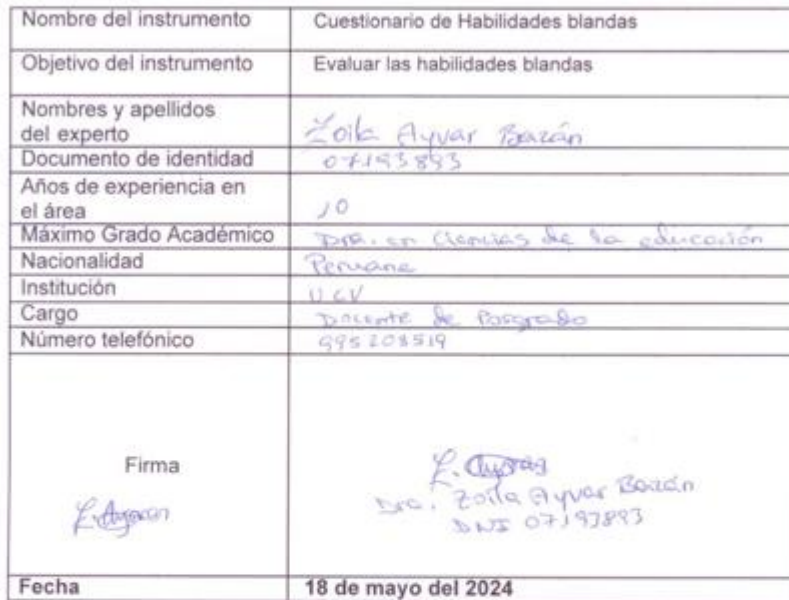 Nombre del instrumento Cuestionario de Habilidades blandas
Objetivo del instrumento Evaluar las habilidades blandas
Nombres y apellidos
del experto Zoila Ayvar Bazán
Documento de identidad 07193893
Años de experiencia en
el área 10
Máximo Grado Académico Dra. en Ciencias de la educación
Nacionalidad Peruana
Institución UCV
Cargo Docente de Posgrado
Número telefónico 995208519
Firma
Dra. Zoila Ayvar Bazán
DNI 07193893
Fecha 18 de mayo del 2024